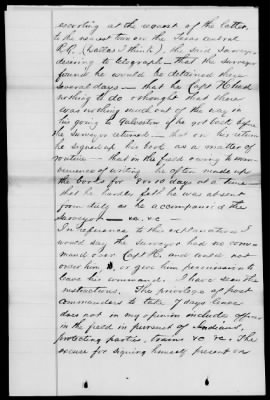 escorting at the request of the latter
to the nearest town on the Texas Central
R.R. (Dallas I think), the said Surveyor
desiring to telegraph - that the surveyor
found he would be detained there
several days - that he Capt H. had
nothing to do & thought that there
was nothing much out of the way in
his going to Galveston if he got back before
the Surveyor returned - that on his return
he signed up his book as a matter of
routine - that in the field owing to
venience of writing he often made up
the books for 8 or 10 days at a time -
that he hardly felt he was absent
from duty as he accompanied the
Surveyor - &c. &c -
In reference to this explanation I
would say the Surveyor had no com-
mand over Capt H. and could not
order him, or give him permission to
leave his command. I have seen the
instructions. The privilege of post
commanders to take 7 days leave
does not in my opinion include officers
in the field in pursuit of Indians,
protecting parties, trains &c &c. The
excuse for signing himself present on